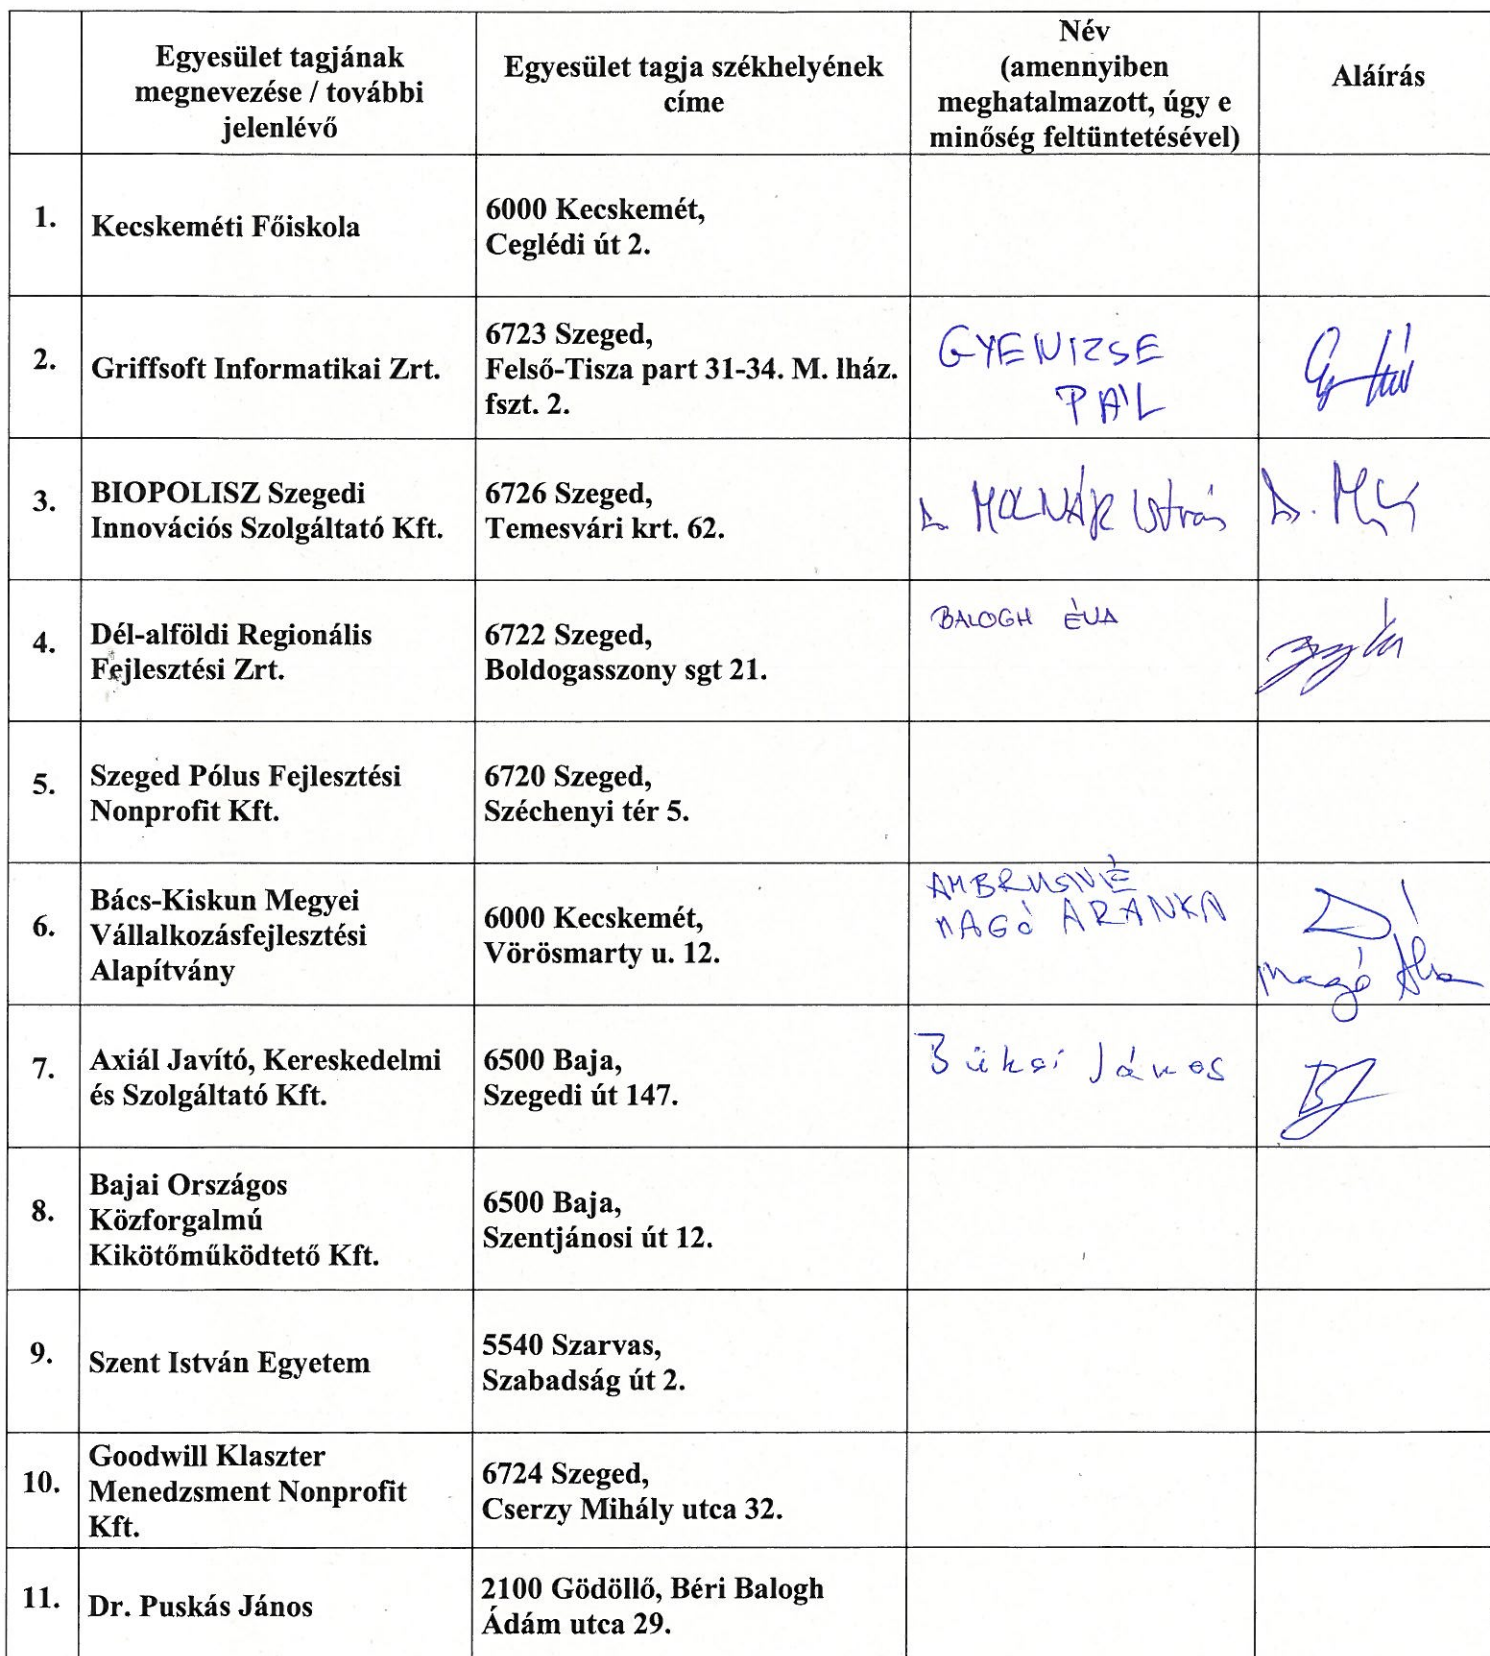 Egyesület tagjának
megnevezése / további
jelenlévő
Egyesület tagja székhelyének
címe
Név
(amennyiben
meghatalmazott, úgy e
minőség feltüntetésével)
Aláírás
1.
Kecskeméti Főiskola
6000 Kecskemét,
Ceglédi út 2.
2.
Griffsoft Informatikai Zrt.
6723 Szeged,
Felső-Tisza part 31-34. M. lház.
fszt. 2.
GYENIZSE
PÁL
3.
BIOPOLISZ Szegedi
Innovációs Szolgáltató Kft.
6726 Szeged,
Temesvári krt. 62.
MOLNÁR István
4.
Dél-alföldi Regionális
Fejlesztési Zrt.
6722 Szeged,
Boldogasszony sgt 21.
BALOGH ÉVA
5.
Szeged Pólus Fejlesztési
Nonprofit Kft.
6720 Szeged,
Széchenyi tér 5.
6.
Bács-Kiskun Megyei
Vállalkozásfejlesztési
Alapítvány
6000 Kecskemét,
Vörösmarty u. 12.
AMBRUSNÉ
MAGÓ ARANKA
Magó
7.
Axiál Javító, Kereskedelmi
és Szolgáltató Kft.
6500 Baja,
Szegedi út 147.
János
8.
Bajai Országos
Közforgalmú
Kikötőműködtető Kft.
6500 Baja,
Szentjánosi út 12.
9.
Szent István Egyetem
5540 Szarvas,
Szabadság út 2.
10.
Goodwill Klaszter
Menedzsment Nonprofit
Kft.
6724 Szeged,
Cserzy Mihály utca 32.
11.
Dr. Puskás János
2100 Gödöllő, Béri Balogh
Ádám utca 29.